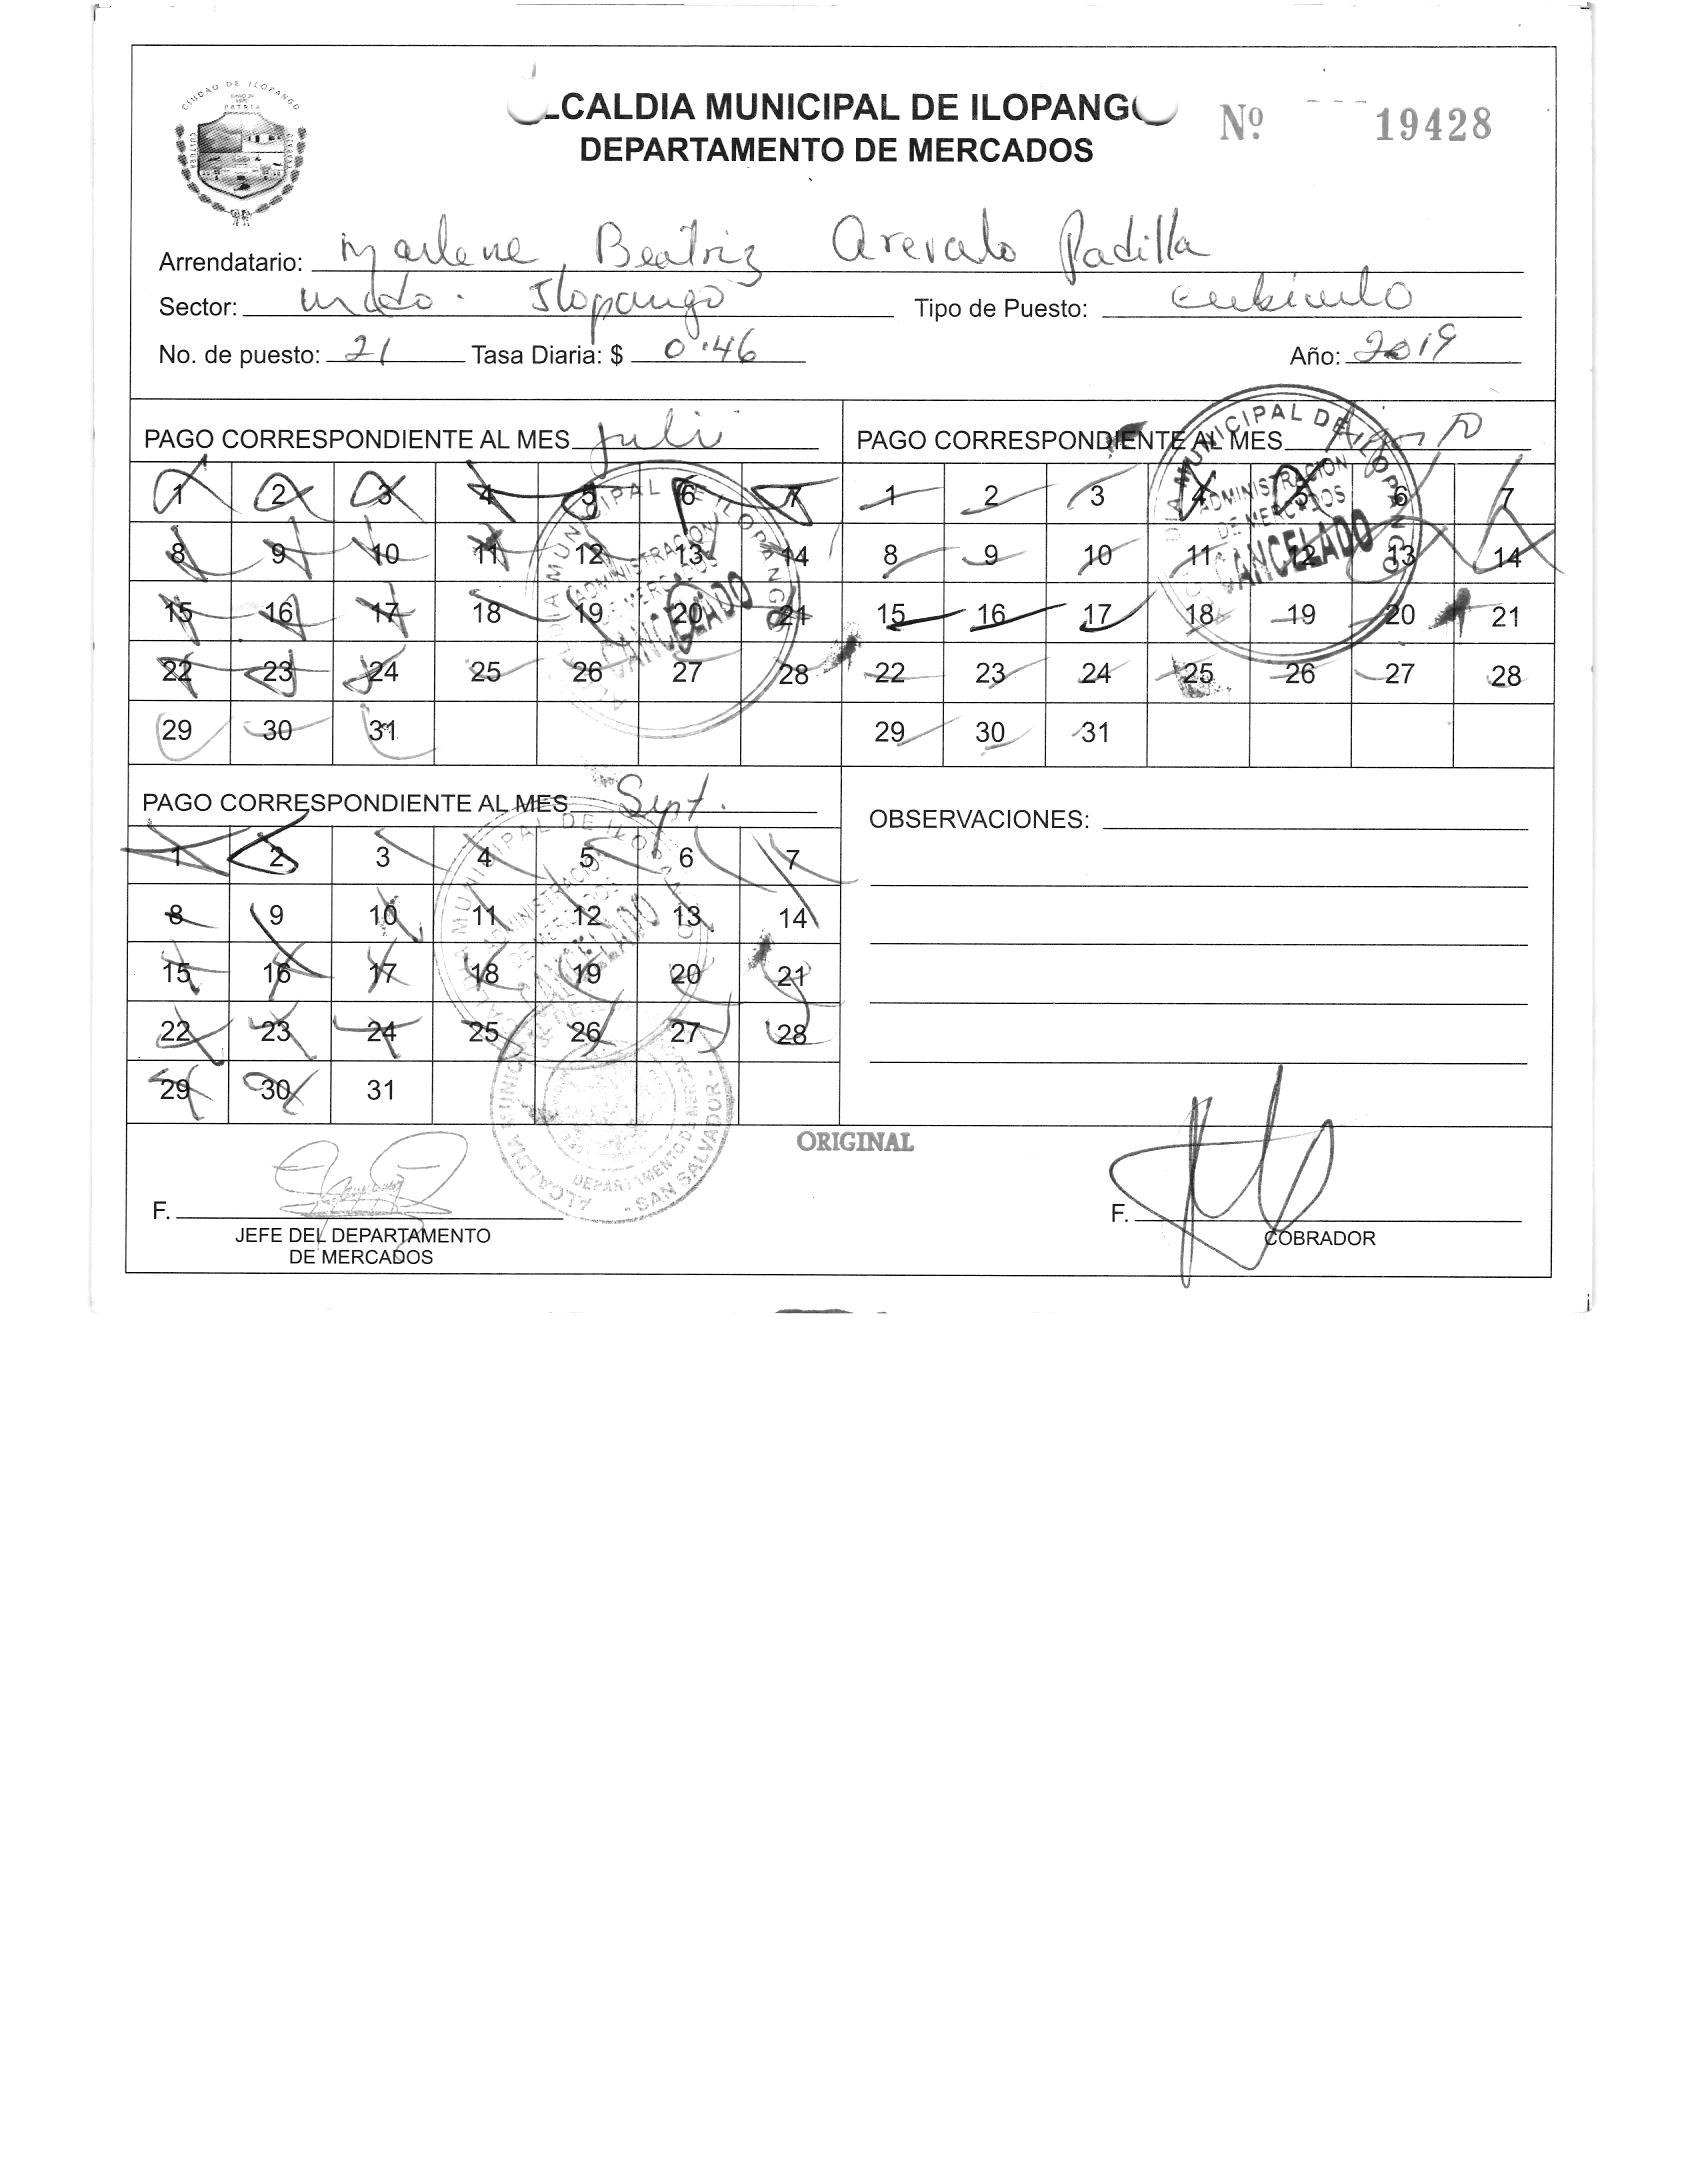 CIUDAD DE ILOPANGO
PATRIA
CULTURA
LCALDIA MUNICIPAL DE ILOPANGO
DEPARTAMENTO DE MERCADOS
Nº 19428
Arrendatario: Marlene Beatriz Arevalo Padilla
Sector: Mdo. Ilopango Tipo de Puesto: cubiculo
No. de puesto: 21 Tasa Diaria: $ 0.46 Año: 2019
PAGO CORRESPONDIENTE AL MES Juli
1 2 3 4 5 6 7
8 9 10 11 12 13 14
15 16 17 18 19 20 21
22 23 24 25 26 27 28
29 30 31
ALCALDIA MUNICIPAL DE ILOPANGO
ADMINISTRACION
DE MERCADOS
CANCELADO
PAGO CORRESPONDIENTE AL MES
1 2 3 4 5 6 7
8 9 10 11 12 13 14
15 16 17 18 19 20 21
22 23 24 25 26 27 28
29 30 31
ALCALDIA MUNICIPAL DE ILOPANGO
ADMINISTRACION
DE MERCADOS
CANCELADO
PAGO CORRESPONDIENTE AL MES Sept.
1 2 3 4 5 6 7
8 9 10 11 12 13 14
15 16 17 18 19 20 21
22 23 24 25 26 27 28
29 30 31
ALCALDIA MUNICIPAL DE ILOPANGO
ADMINISTRACION
DE MERCADOS
CANCELADO
OBSERVACIONES:
ALCALDIA MUNICIPAL
DEPARTAMENTO DE MERCADOS
- SAN SALVADOR -
ORIGINAL
F.
JEFE DEL DEPARTAMENTO
DE MERCADOS
F.
COBRADOR